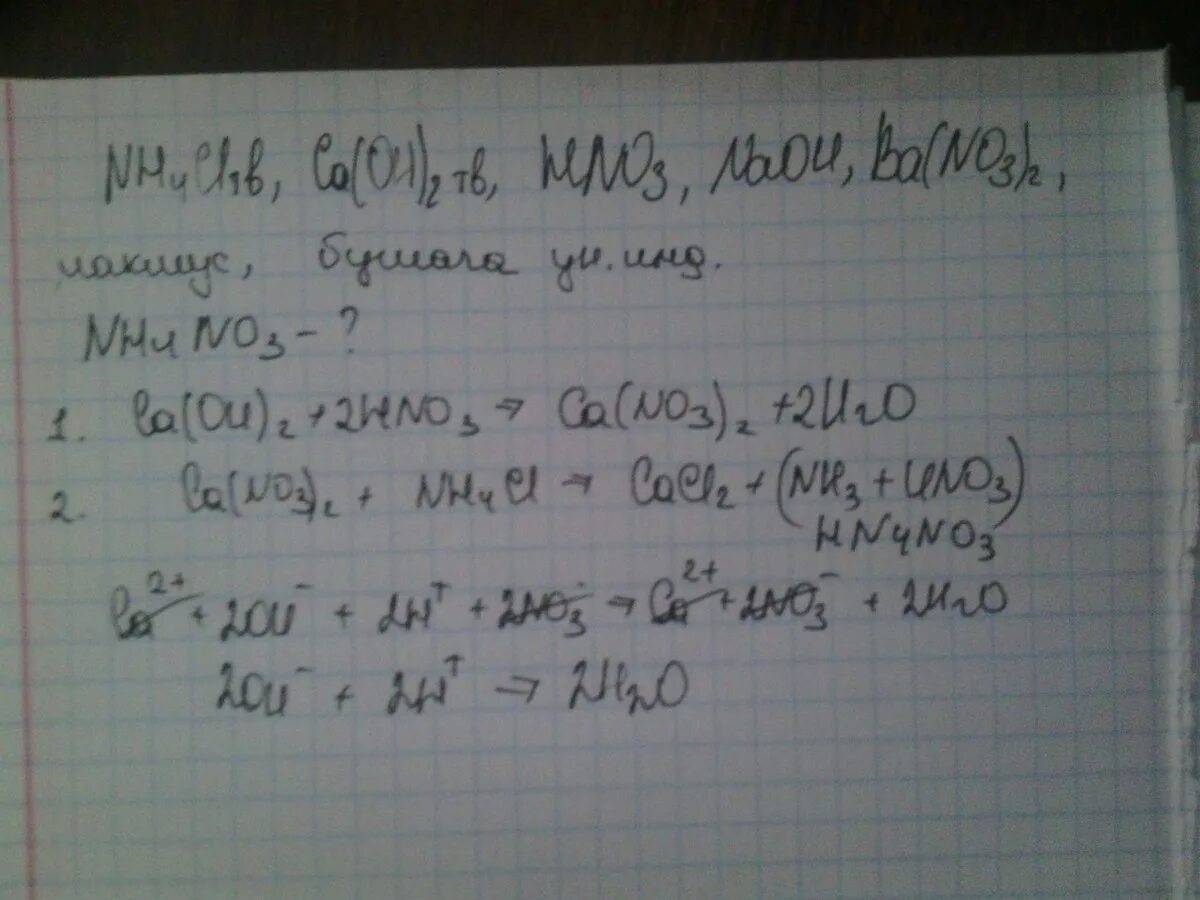 NH₄Cl тв, Ca(OH)₂ тв, HNO₃, NaOH, Ba(NO₃)₂,
лакмус, бумага ун. инд.
NH₄NO₃ - ?
1. Ca(OH)₂ + 2HNO₃ → Ca(NO₃)₂ + 2H₂O
2. Ca(NO₃)₂ + NH₄Cl → CaCl₂ + (NH₃ + HNO₃)
HN₄NO₃
Ca²⁺ + 2OH⁻ + 2H⁺ + 2NO₃⁻ → Ca²⁺ + 2NO₃⁻ + 2H₂O
2OH⁻ + 2H⁺ → 2H₂O